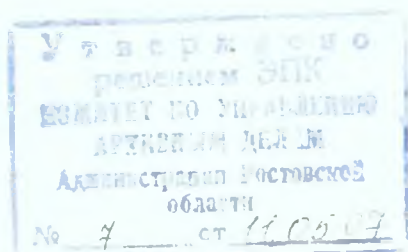 Утверждено
решением ЭПК
КОМИТЕТ ПО УПРАВЛЕНИЮ
АРХИВНЫМ ДЕЛОМ
Администрации Ростовской
области
№ 7 от 11.05.07